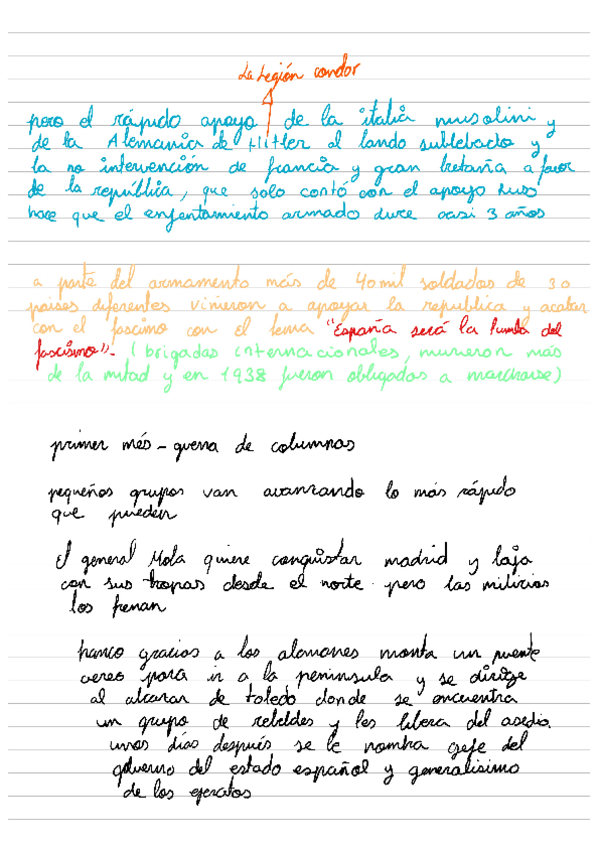 La Legión condor
pero el rápido apoyo de la italia musolini y
de la Alemania de Hitler al bando sublebado y
la no intervención de francia y gran bretaña a favor
de la república, que solo contó con el apoyo ruso
hace que el enfentamiento armado dure casi 3 años
a parte del armamento más de 40 mil soldados de 30
paises diferentes vinieron a apoyar la republica y acabar
con el fascimo con el lema "España será la tumba del
fascismo". (brigadas internacionales, murieron más
de la mitad y en 1938 fueron obligados a marcharse)
primer més - guerra de columnas
pequeños grupos van avanzando lo más rápido
que pueden
El general Mola quiere conquistar madrid y baja
con sus tropas desde el norte pero las milicias
los frenan
franco gracias a los alemanes monta un puente
aereo para ir a la peninsula y se dirige
al alcazar de toledo donde se encuentra
un grupo de rebeldes y les libera del asedio.
unos días después se le nombra gefe del
gobierno del estado español y generalisimo
de los ejercitos